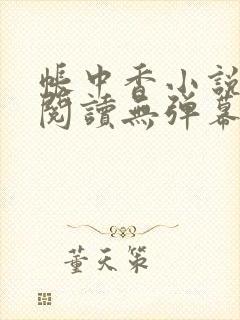 帳中香小說
閱讀無彈幕
董天策